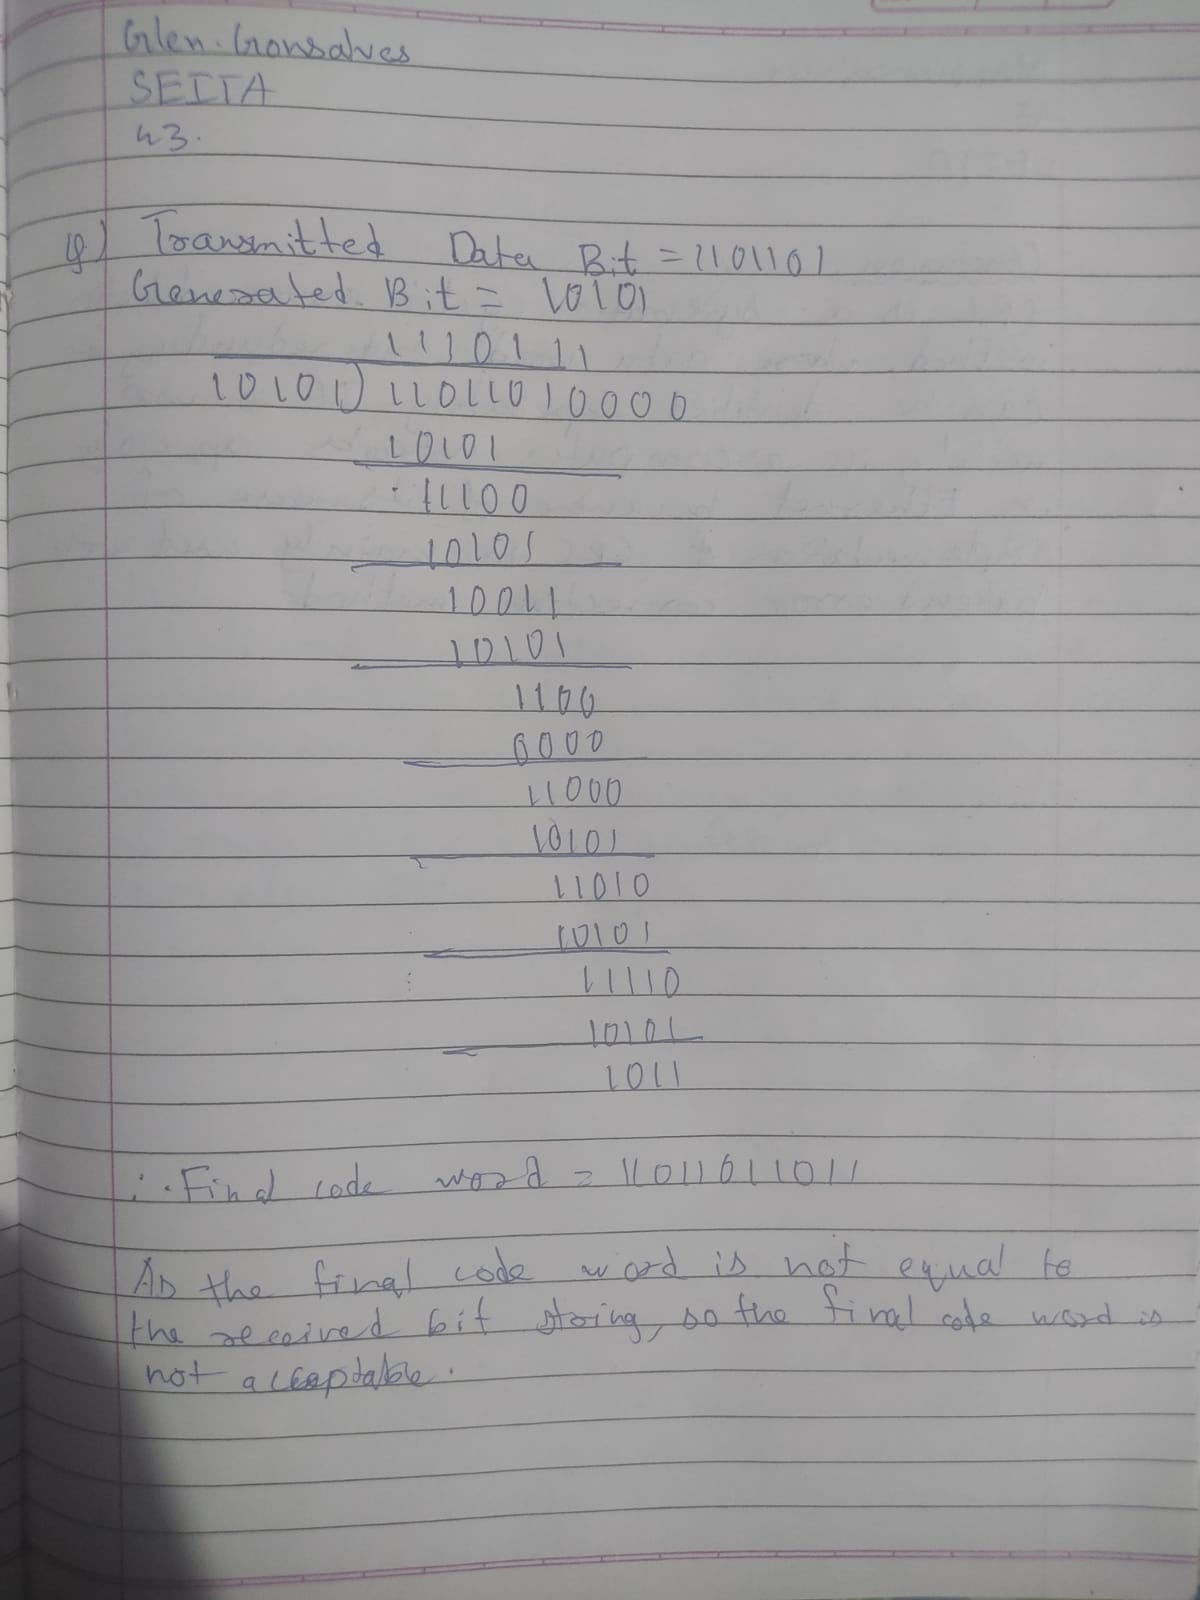 Glen. Gonsalves
SEITA
43.
Q) Transmitted Data Bit = 1101101
Generated Bit = 10101
1110111
10101) 11011010000
10101
11100
10101
10011
10101
1100
0000
11000
10101
11010
10101
11110
10101
1011
∴ Final code word = 11011011011
As the final code word is not equal to
the received bit string, so the final code word is
not acceptable.